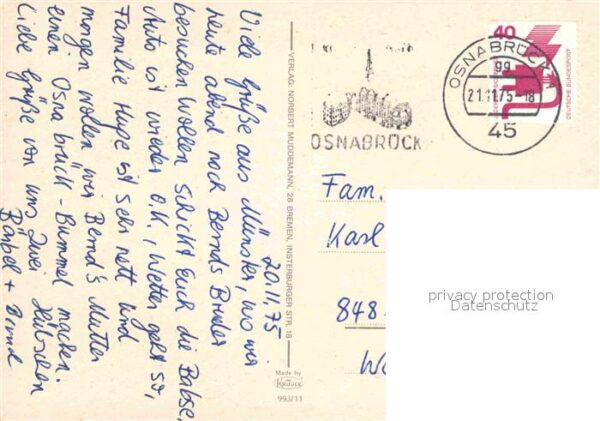 20.11.75
Viele Grüße aus Münster, wo wir
heute abend noch Bernds Bruder
besuchen wollen schickt Euch die Babse,
Auto ist wieder O.K., Wetter geht so,
Familie Huge ist sehr nett und
morgen wollen wir Bernd's Mutter
einen Osnabrück-Bummel machen.
Liebe Grüße von uns zwei Hübschen
Bärbel + Bernd
VERLAG NORBERT MUDDEMANN, 28 BREMEN, INSTERBURGER STR. 18
Made by
KRÜGER
993/11
OSNABRÜCK
40
DEUTSCHE BUNDESPOST
OSNABRÜCK
gg
21.11.75-18
45
Fam.
Karl
848
privacy protection
Datenschutz